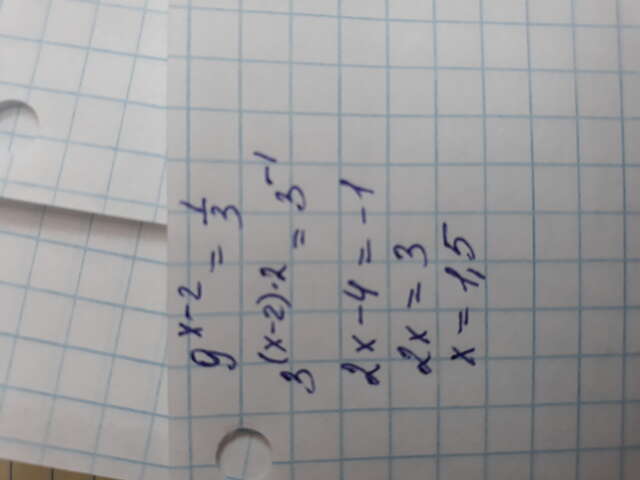 9^{x-2} = \frac{1}{3}
3^{(x-2)·2} = 3^{-1}
2x-4=-1
2x=3
x=1,5